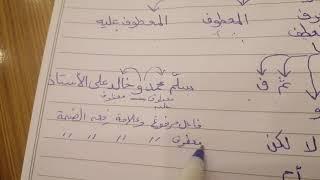 المعطوف المعطوف عليه
ثم ف
سلّم محمد وخالد على الأستاذ
معطوف عليه معطوف
فاعل مرفوع وعلامة رفعه الضمة
معطوف " " " "
لا لكن
أم